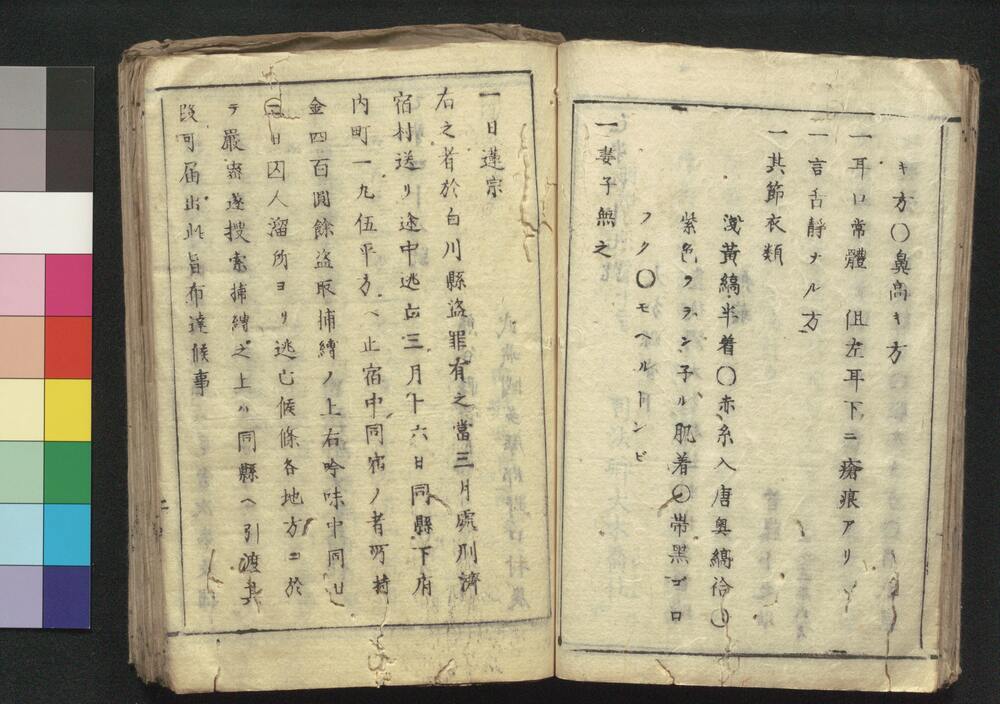 キ方〇鼻高キ方
一耳口常體但左耳下ニ瘡痕アリ
一言舌靜ナル方
一其節衣類
淺黄縞半着〇赤糸入唐奥縞袷〇
紫色フラン子ル肌着〇帯黒ゴロ
フク〇モヘルトンビ
一妻子無之
一日蓮宗
右之者於白川縣盗罪有之當三月處刑濟
宿村送リ途中逃亡三月十六日同縣下府
内町一九伍平方ヘ止宿中同宿ノ者所持
金四百圓餘盗取捕縛ノ上右吟味中同廿
日囚人溜所ヨリ逃亡候條各地方ニ於
テ嚴密遂搜索捕縛之上ハ同縣ヘ引渡其
段可届出此旨布達候事